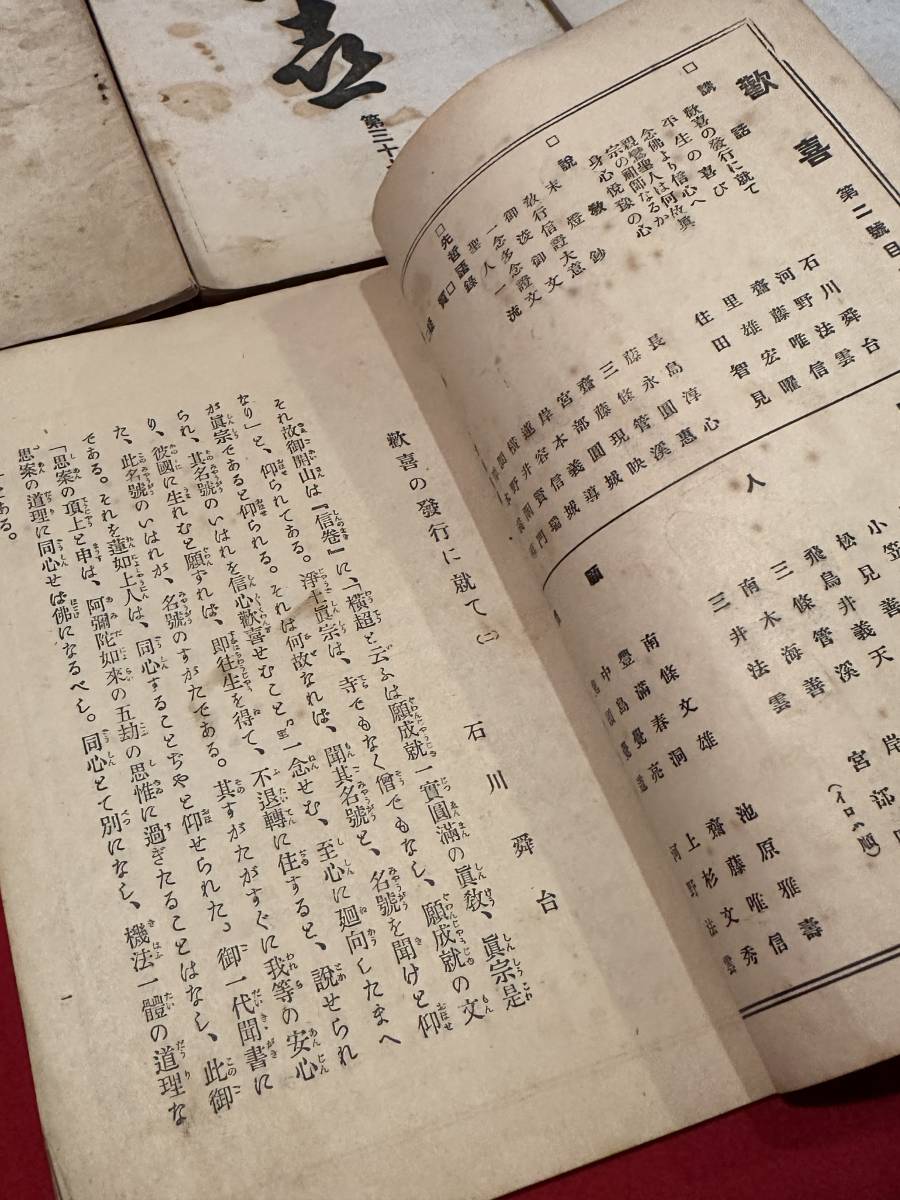 喜
第三十
歡喜 第二號目
□講話
歡喜の發行に就て 石川舜台
平生の喜び 河野法雲
念佛より信心へ 齋藤唯信
親鸞聖人は何故眞
宗の祖師なるか
身心悅豫の心 住田智見
□說敎
末燈鈔 長島淳心
敎行信證大意 藤永圓惠
御文
一念多念證文
聖人一流
□先哲語錄□
人
顧
小笠
松見善
飛鳥井義天
三條管溪
南木海善
三井法雲
南條文雄
豐滿春洞
中島覺亮
岸
宮部
(イロハ順)
池原雅壽
齋藤唯信
上杉文秀
河野法雲
歡喜の發行に就て(二)
石川舜台
それ故御開山は『信卷』に、「横超と云ふは願成就一實圓滿の眞敎、眞宗是
なり」と、仰られてある。淨土眞宗は、寺でもなく僧でもなし、願成就の文
が眞宗であると仰られる。それは何故なれば、聞其名號と、名號を聞けと仰
られ、其名號のいはれを信心歡喜せむこと乃至一念せむ、至心に廻向したまへ
り、彼國に生れむと願ずれば、即往生を得て、不退轉に住すると、說せられ
た、此名號のいはれが、名號のすがたである。其すがたがすぐに我等の安心
である。それを蓮如上人は、同心することぢやと仰せられた、御一代聞書に
「思案の頂上と申は、阿彌陀如來の五劫の思惟に過ぎたることはなし、此御
思案の道理に同心せは佛になるべし。同心とて別になし、機法一體の道理な
とある。
一